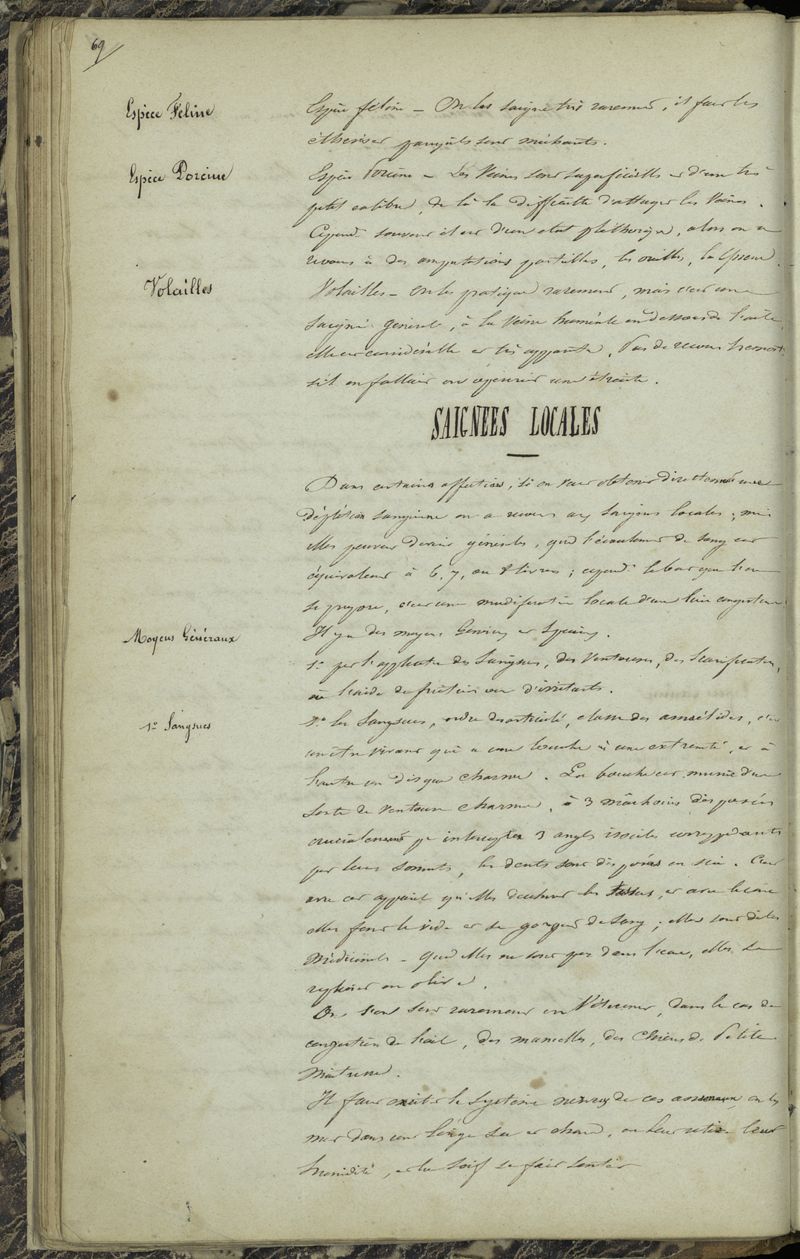 69
Espèce Féline
Espèce féline — On les saigne très rarement, il faut les
éthériser puisqu'ils sont méchants.
Espèce Porcine
Espèce Porcine — Les Veines sont superficielles et d'un très
petit calibre, de là la difficulté d'attaquer les Veines.
Cepend. souvent il est d'un état pléthorique, alors on a
recours à des amputations partielles, les oreilles, la queue.
Volailles
Volailles — On les pratique rarement, mais c'est une
saignée générale, à la Veine humérale en dessous de l'aile
elle est considérable et très apparente. Pas de recours
s'il en fallait une
SAIGNÉES LOCALES
Dans certaines affections, si on veut obtenir directement une
déplétion sanguine on a recours aux saignées locales; mais
elles peuvent devenir générales, qud l'écoulement de sang est
équivalent à 6, 7, ou 8 livres; cepend. le but que l'on
se propose, c'est une modification locale d'un lieu congestionné
Moyens Généraux
Il y a des moyens
1º par l'application des Sangsues, des Ventouses, des Scarifications,
ou à l'aide de frictions ou d'irritants.
1º Sangsues
1º les Sangsues, ordre des articulés, classe des annélides, c'est
un être vivant qui a une bouche à une extrémité, et à
l'autre un disque charnu. La bouche est munie d'une
sorte de Ventouse charnue, à 3 mâchoires disposées
3 angles correspondants
par leurs sommets, les dents sont disposées en scie. C'est
avec cet appareil qu'elles déchirent les tissus, et avec lequel
elles font le vide et se gorgent de sang; elles sont dites
Médicinales — quand elles ne sont pas dans l'eau, elles se
replient en olive.
On s'en sert rarement en Vétérinaire, dans le cas de
congestion de l'œil, des mamelles, des Chiens de Petite
Maîtresse.
Il faut exciter le système nerveux de ces animaux, on les
met dans un linge sec et chaud, on leur retire leur
humidité, et la soif se fait sentir